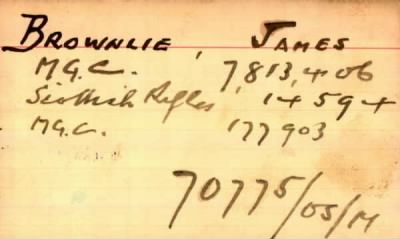 BROWNLIE, JAMES
M.G.C. 7813,406
Scottish Rifles, 14594
M.G.C. 177903
70775/OS/M